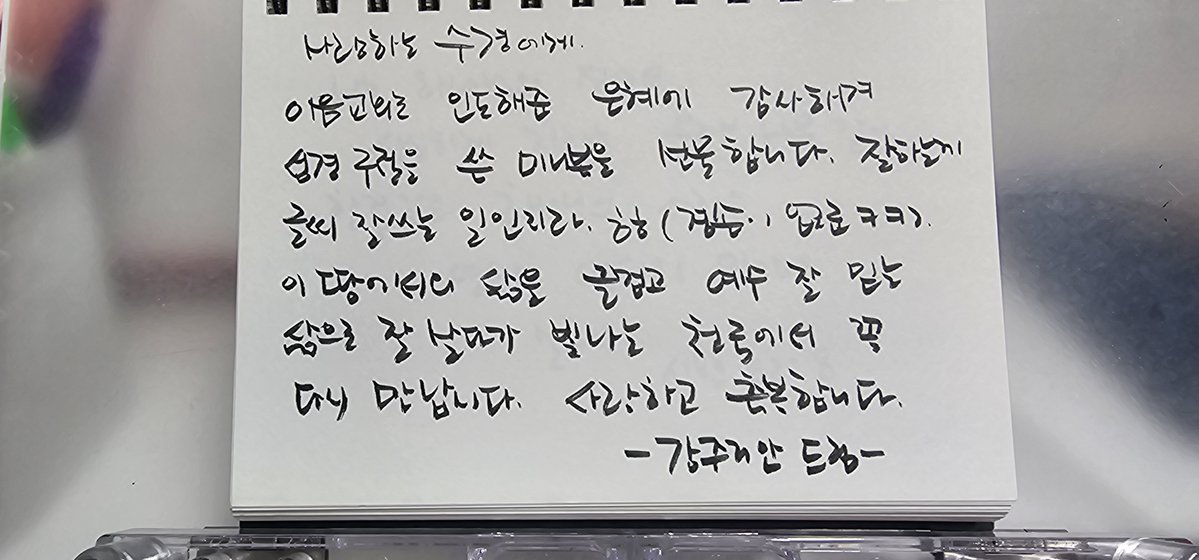 사랑하는 수경에게.
이음교회로 인도해준 은혜에 감사하여
성경 구절을 쓴 미니북을 선물합니다. 잘하는게
글씨 잘쓰는 일인지라. 하하 (겸손이 없으로 ㅋㅋ).
이 땅에서의 삶을 즐겁고 예수 잘 믿는
삶으로 잘 살다가 빛나는 천국에서 꼭
다시 만납시다. 사랑하고 축복합니다.
-강주리안 드림-